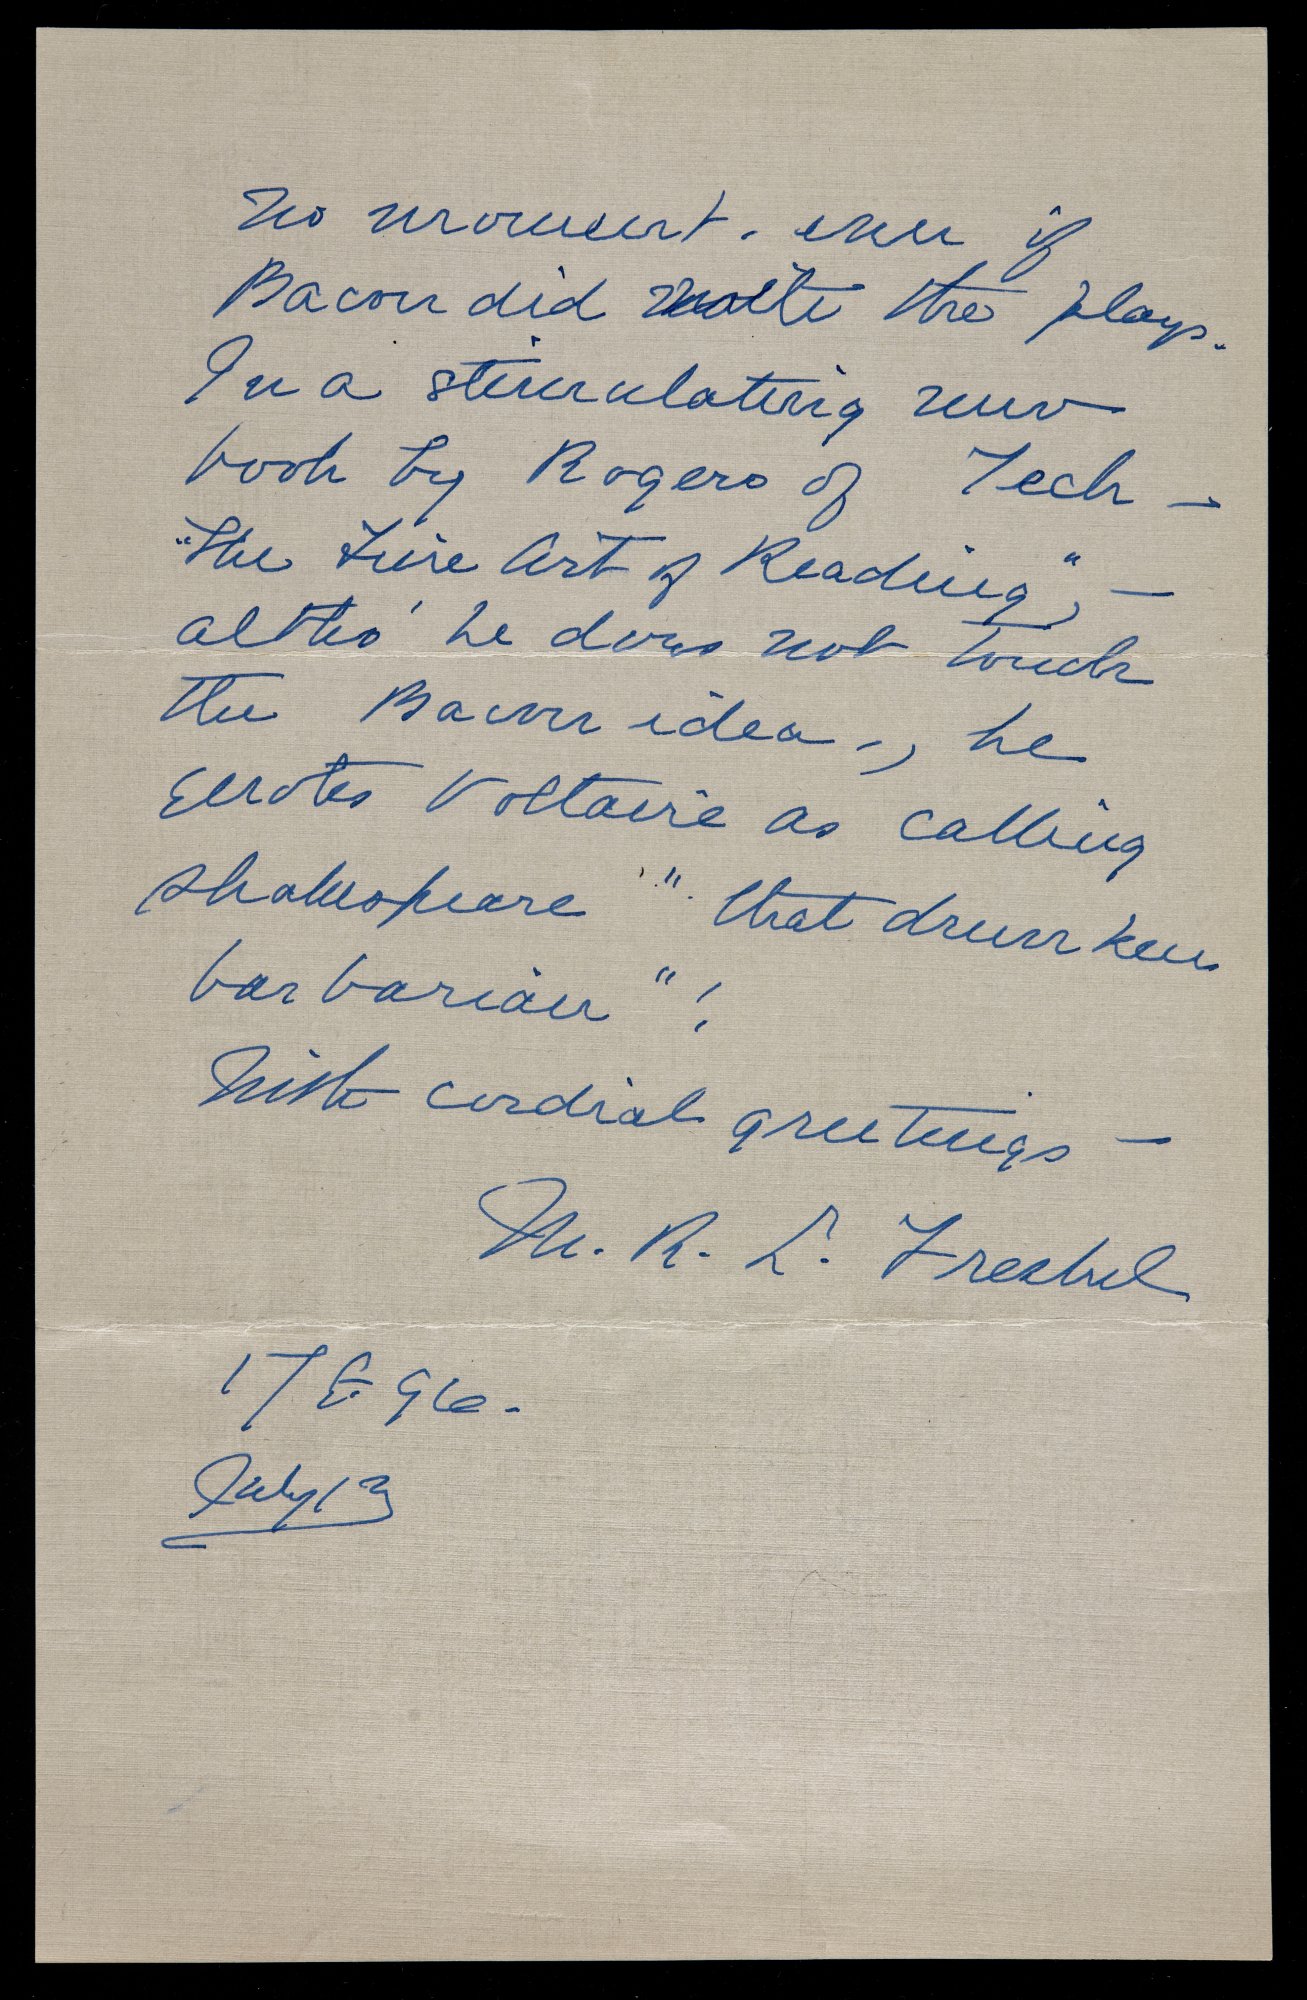 no moment. even if
Bacon did write the plays.
In a stimulating new
book by Rogers of Tech —
"The Fine Art of Reading", —
altho' he does not touch
the Bacon idea, he
quotes Voltaire as calling
Shakespeare " that drunken
barbarian " !
With cordial greetings —
M. R. L. Freshel
17 E 96.
July 13